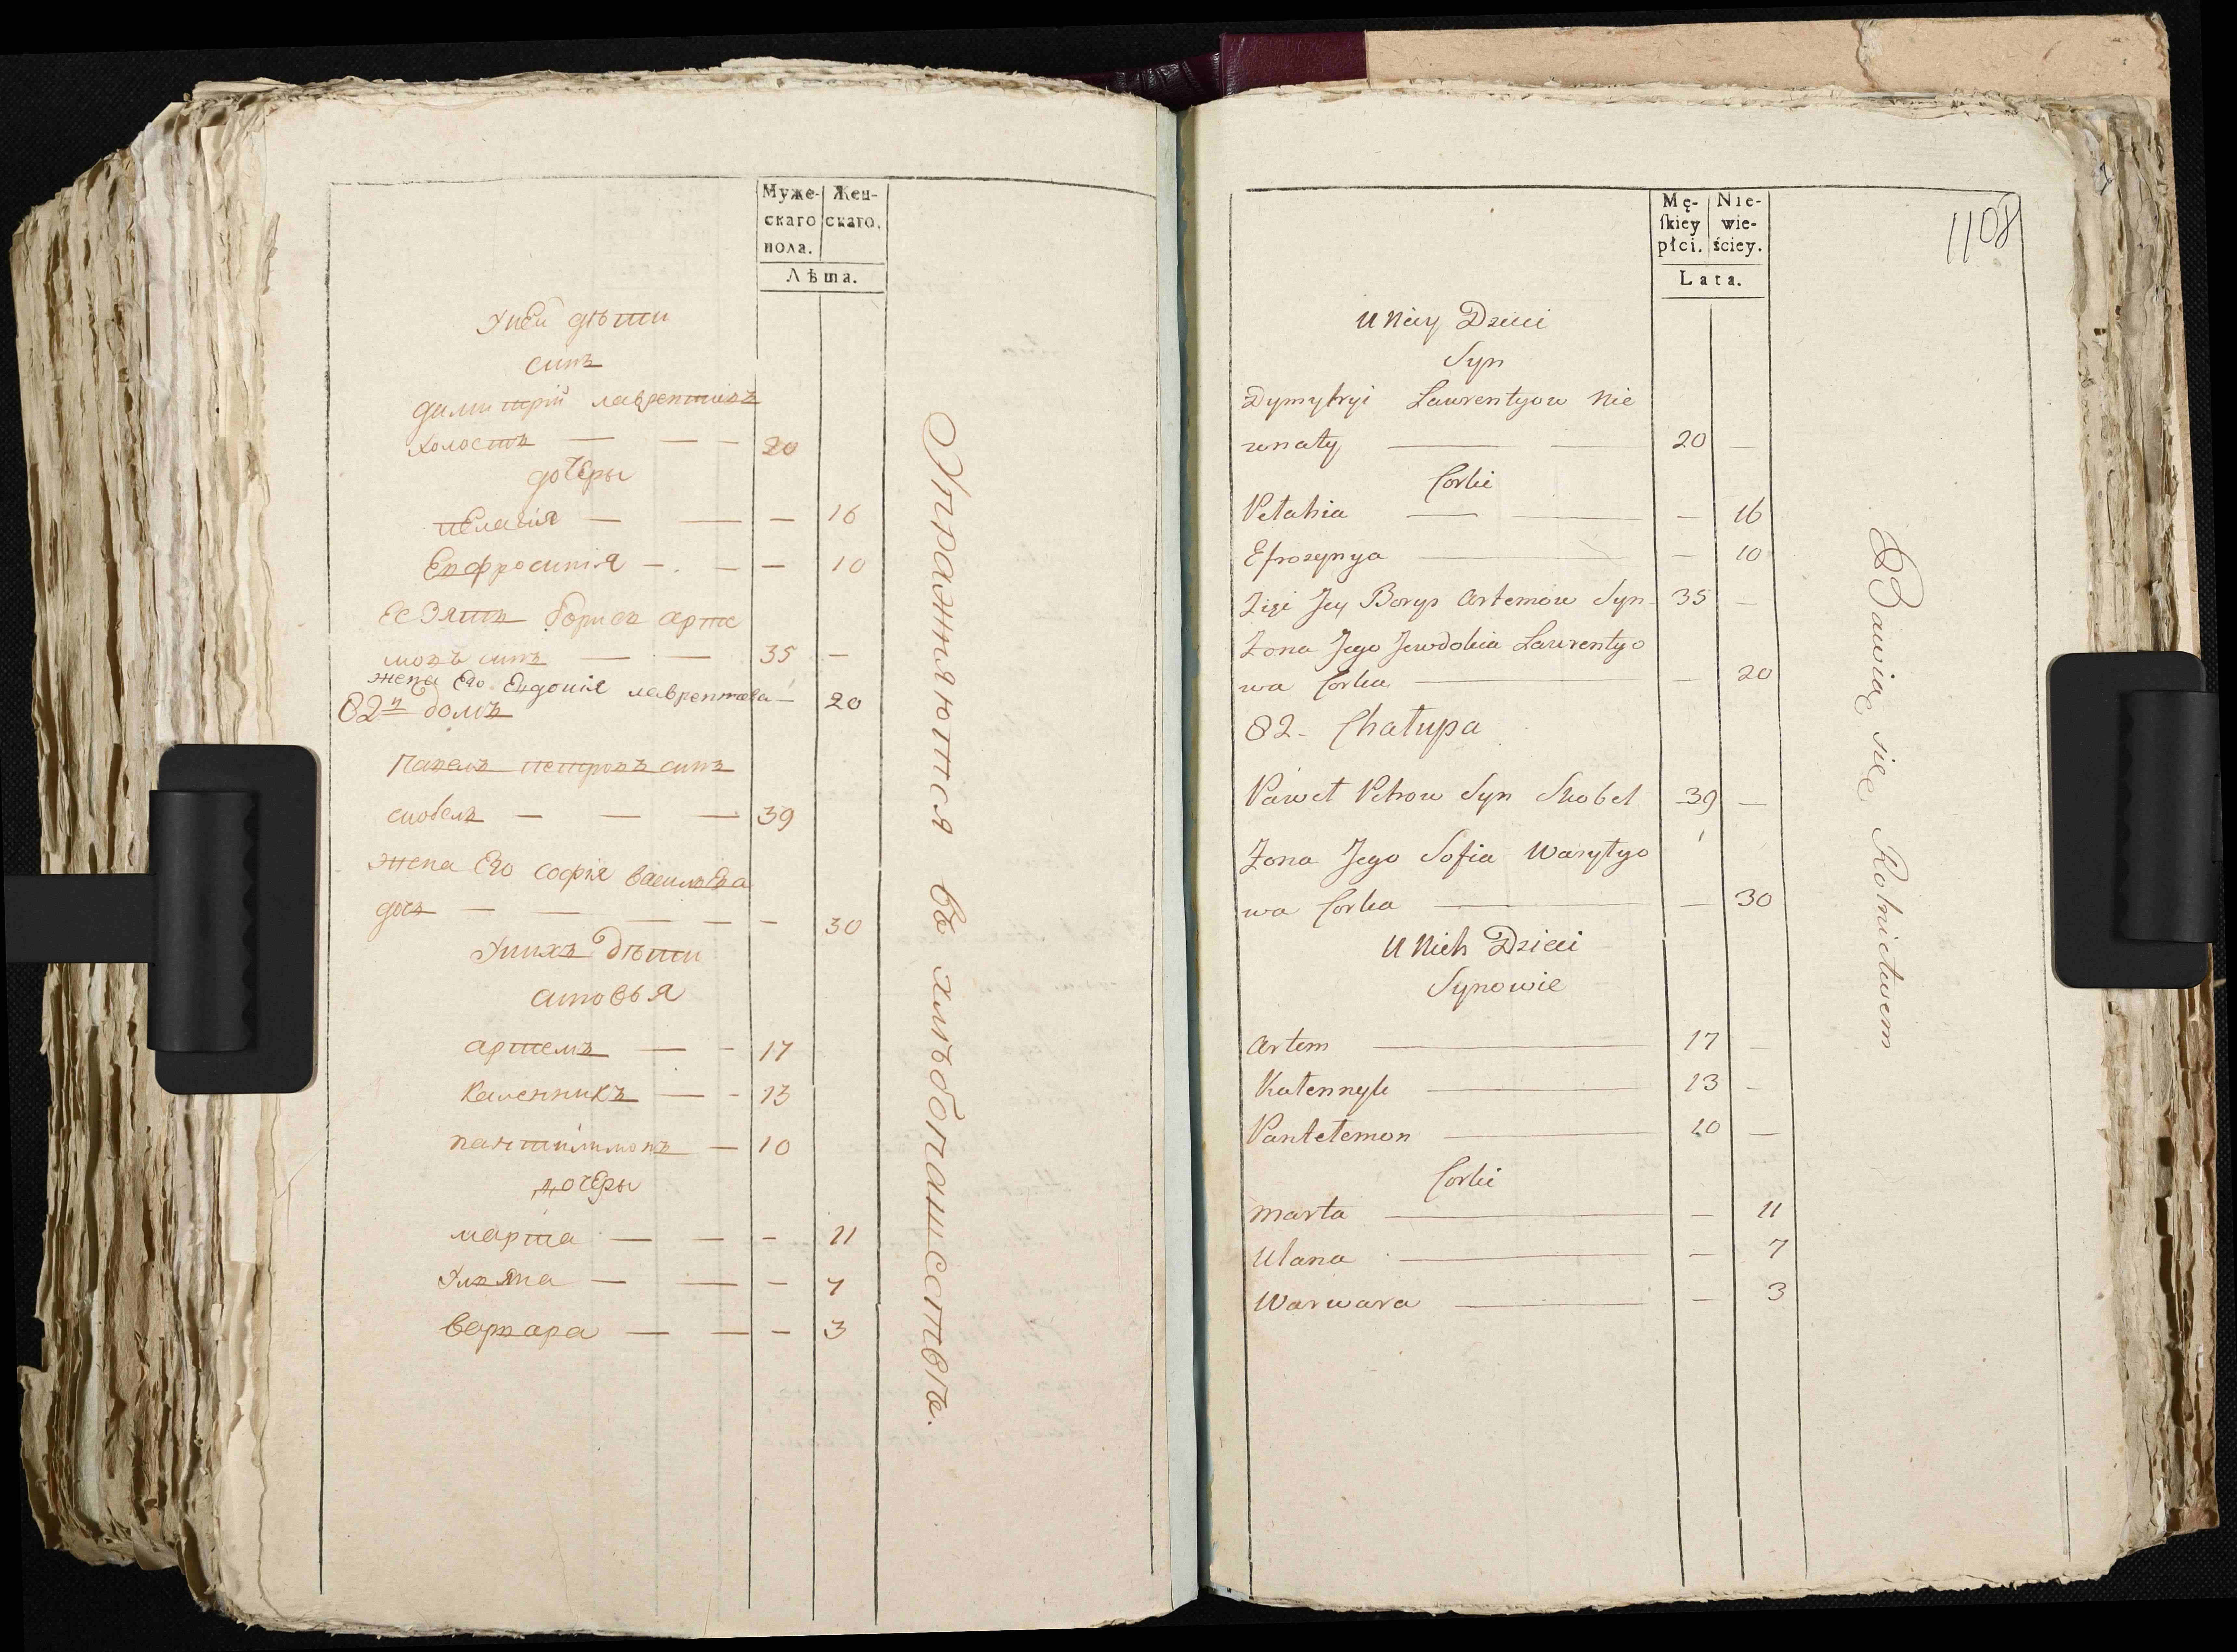 Муже- Жен-
скаго скаго.
пола.
Лѣта.
Унеи дѣти
синъ
димитрій лаврентиевъ
холостъ — — — 20
дочеры
пелагія — — — 16
Евфросинія — . — — 10
Ее Зять борисъ арте
мовъ синъ — — 35 —
жена Его Евдокія лаврентева — 20
82й домъ
Павелъ петровъ синъ
скобелъ — — — 39
жена Его софія василѣва
дочь — — — — — 30
Унихъ дѣти
синовья
артемъ — — 17
каленникъ — — 13
пантилимонъ — 10
дочеры
марта — — — 11
Уляна — — — 7
варвара — — — 3
Упражняются въ хлѣбопашествѣ.
Mę- Nie-
ſkiey wie-
płci. ściey.
Lata.
1108
U Niey Dzieci
Syn
Dymytryi Lawrentyow Nie
wnaty — — 20 —
Corki
Pelahia — — — 16
Efrozynya — — 10
Zięć Jey Borys Artemow Syn 35 —
Żona Jego Jewdokia Lawrentyo
wa Corka — — 20
82- Chałupa
Paweł Petrow Syn Skobel 39 —
Żona Jego Sofia Wasylyo
wa Corka — — 30
U Nich Dzieci
Synowie
Artem — 17 —
Kalennyk — 13 —
Pantelemon — 10 —
Corki
Marta — — 11
Ulana — — 7
Warwara — — 3
Bawią się Rolnictwem